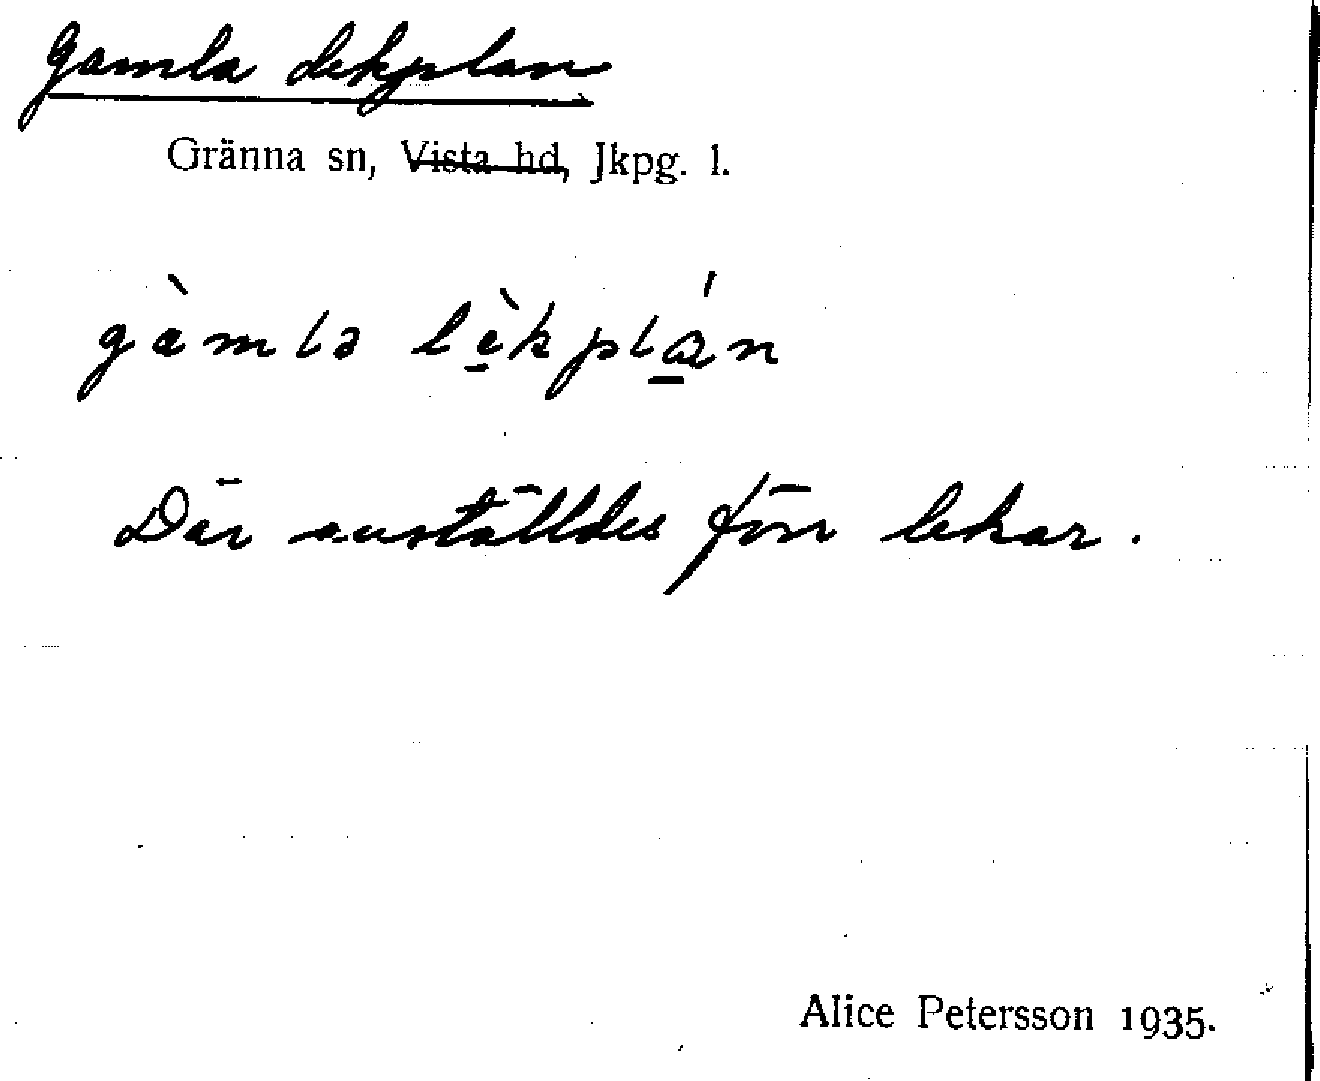 Gamla lekplan
Gränna sn, Vista hd, Jkpg. l.
gàmla lèkplán
Där anställdes förr lekar.
Alice Petersson 1935.